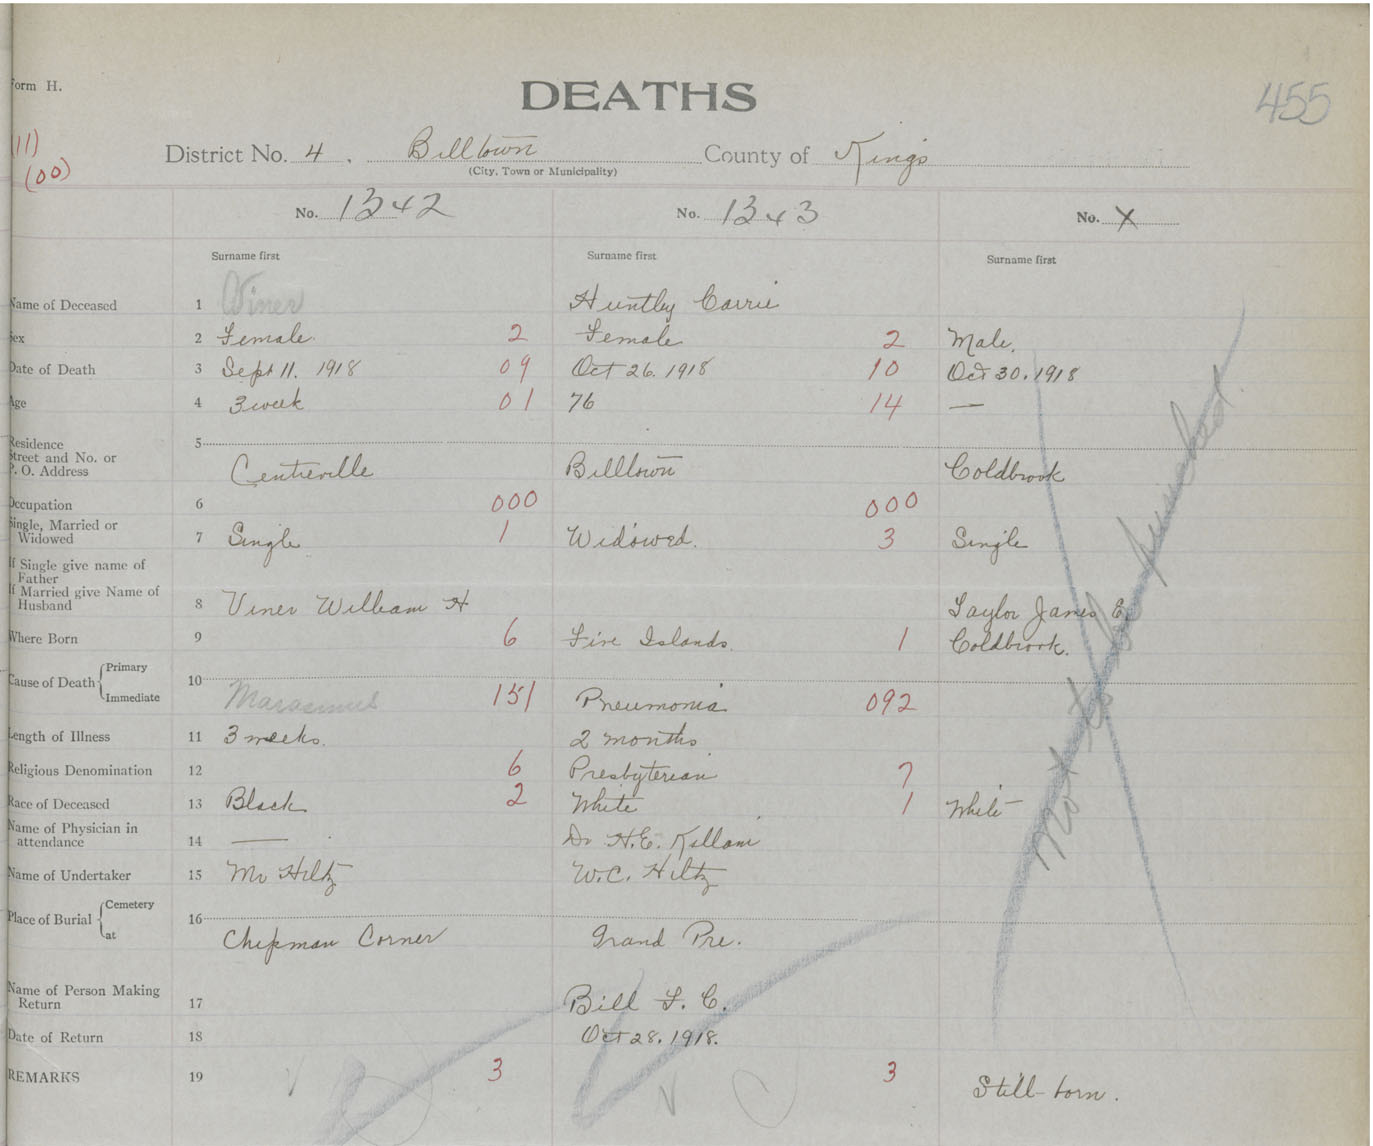 Form H.
DEATHS
455
(11)
(00)
District No. 4. Billtown County of Kings
(City, Town or Municipality)
No. 1342 No. 1343 No. X
Surname first Surname first Surname first
Name of Deceased 1 Viner Huntley Carrie
Sex 2 Female. 2 Female 2 Male.
Date of Death 3 Sept 11. 1918 09 Oct 26. 1918 10 Oct 30. 1918
Age 4 3 week 01 76 14 —
Residence 5
Street and No. or
P. O. Address Centreville Billtown Coldbrook
Occupation 6 000 000
Single, Married or
Widowed 7 Single 1 Widowed. 3 Single
If Single give name of
Father
If Married give Name of
Husband 8 Viner William H Taylor James E.
Where Born 9 6 Five Islands. 1 Coldbrook.
Cause of Death { Primary
Immediate 10 Marasmus 151 Pneumonia 092
Length of Illness 11 3 weeks. 2 months
Religious Denomination 12 6 Presbyterian 7
Race of Deceased 13 Black 2 White 1 White
Name of Physician in
attendance 14 — Dr H.E. Killam
Name of Undertaker 15 Mr Hiltz W.C. Hiltz
Place of Burial { Cemetery
at 16 Chipman Corner Grand Pre.
Name of Person Making
Return 17 Bill F. C.
Date of Return 18 Oct 28. 1918.
REMARKS 19 3 3 Still-born.
Not to be punched.